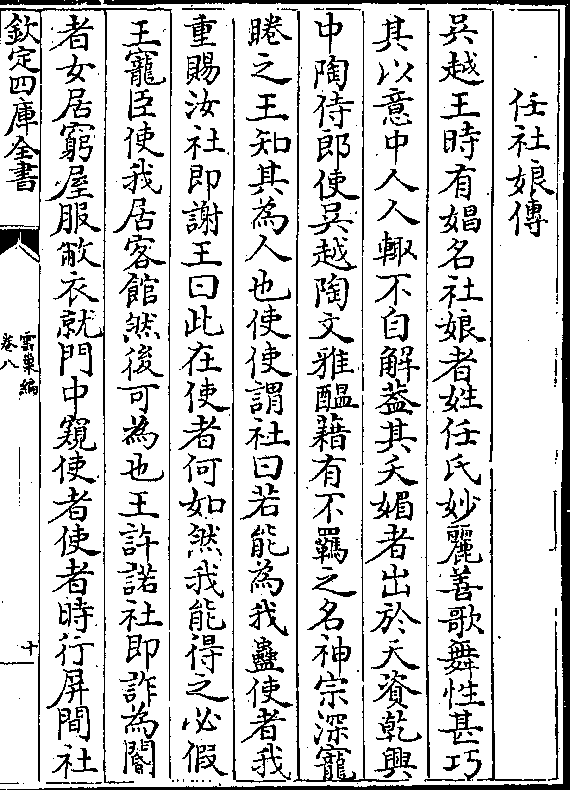 任社娘傳
吳越王時有娼名社娘者姓任氏妙麗善歌舞性甚巧
其以意中人人輙不自解葢其夭媚者出於天資乾興
中陶侍郎使吳越陶文雅醖藉有不羈之名神宗深寵
睠之王知其為人也使使謂社曰若能為我蠱使者我
重賜汝社即謝王曰此在使者何如然我能得之必假
王寵臣使我居客館然後可為也王許諾社即詐為閽
者女居窮屋服敝衣就門中窺使者使者時行屏間社
欽定四庫全書
雲巢編
卷八
十